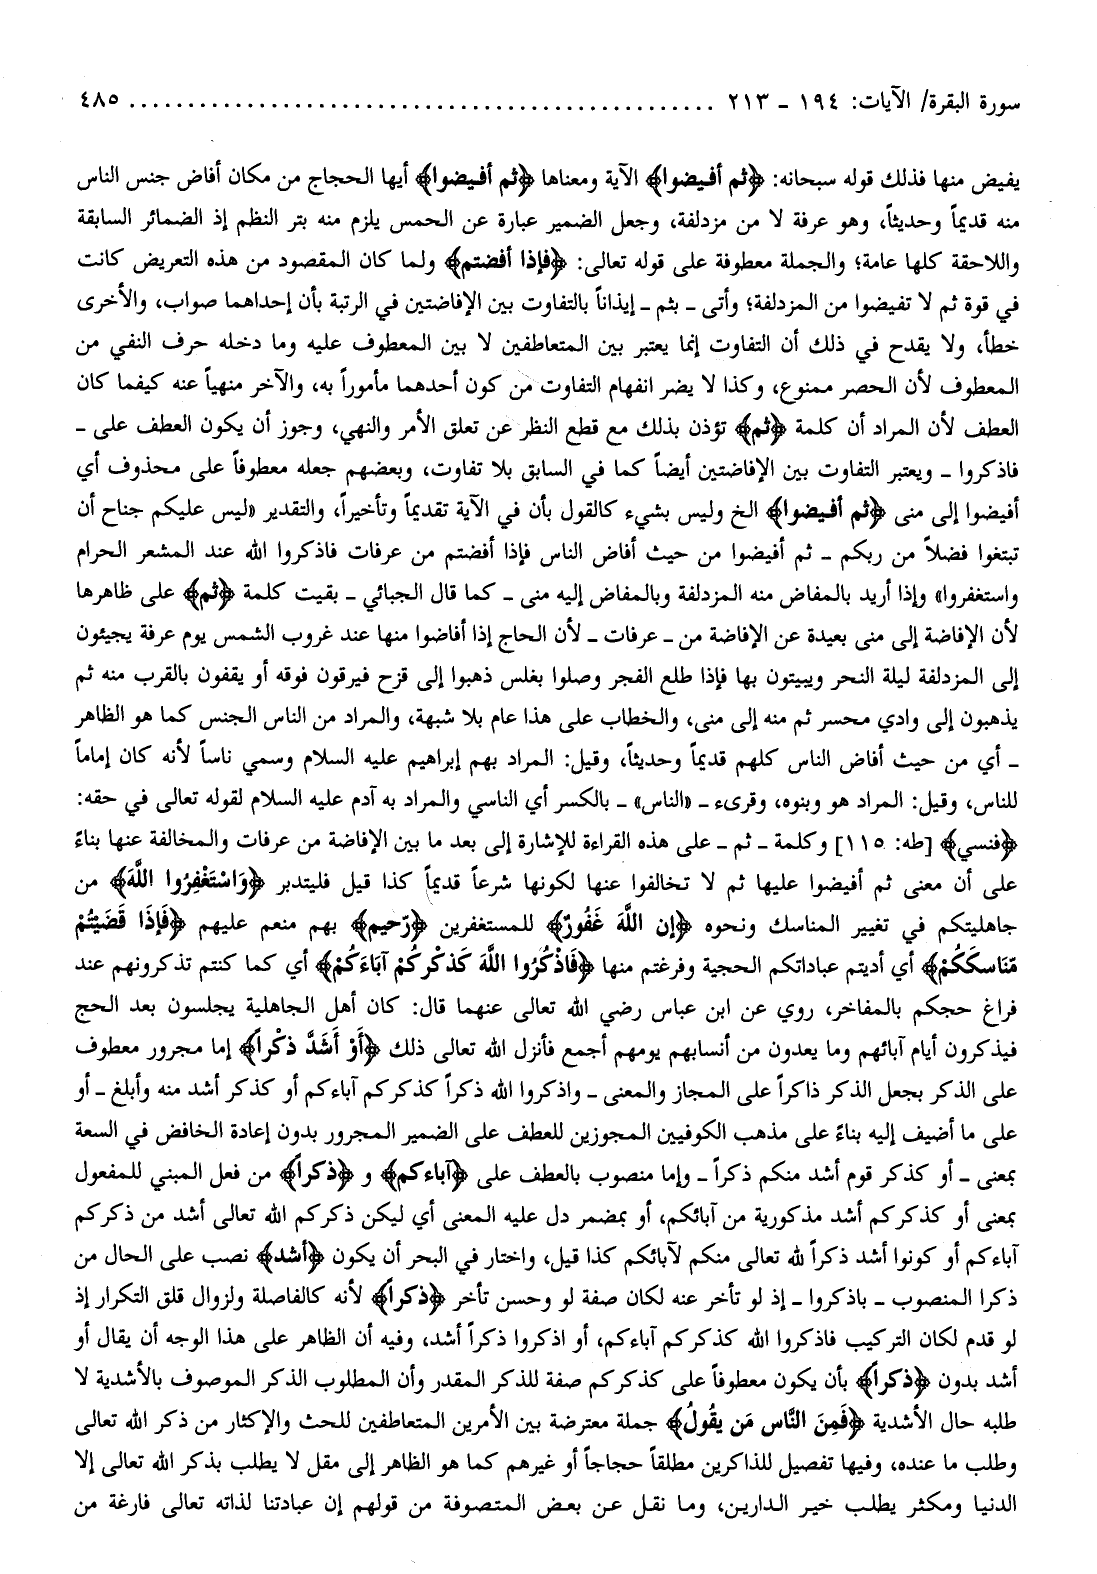 سورة البقرة/ الآيات: ١٩٤ ـ ٢١٣ ................................................ ٤٨٥
يفيض منها فذلك قوله سبحانه: ﴿ثم أفيضوا﴾ الآية ومعناها ﴿ثم أفيضوا﴾ أيها الحجاج من مكان أفاض جنس الناس
منه قديماً وحديثاً، وهو عرفة لا من مزدلفة، وجعل الضمير عبارة عن الحمس يلزم منه بتر النظم إذ الضمائر السابقة
واللاحقة كلها عامة؛ والجملة معطوفة على قوله تعالى: ﴿فإذا أفضتم﴾ ولما كان المقصود من هذه التعريض كانت
في قوة ثم لا تفيضوا من المزدلفة؛ وأتى ـ بثم ـ إيذاناً بالتفاوت بين الإفاضتين في الرتبة بأن إحداهما صواب، والأخرى
خطأ، ولا يقدح في ذلك أن التفاوت إنما يعتبر بين المتعاطفين لا بين المعطوف عليه وما دخله حرف النفي من
المعطوف لأن الحصر ممنوع، وكذا لا يضر انفهام التفاوت من كون أحدهما مأموراً به، والآخر منهياً عنه كيفما كان
العطف لأن المراد أن كلمة ﴿ثم﴾ تؤذن بذلك مع قطع النظر عن تعلق الأمر والنهي، وجوز أن يكون العطف على ـ
فاذكروا ـ ويعتبر التفاوت بين الإفاضتين أيضاً كما في السابق بلا تفاوت، وبعضهم جعله معطوفاً على محذوف أي
أفيضوا إلى منى ﴿ثم أفيضوا﴾ الخ وليس بشيء كالقول بأن في الآية تقديماً وتأخيراً، والتقدير «ليس عليكم جناح أن
تبتغوا فضلاً من ربكم ـ ثم أفيضوا من حيث أفاض الناس فإذا أفضتم من عرفات فاذكروا الله عند المشعر الحرام
واستغفروا» وإذا أريد بالمفاض منه المزدلفة وبالمفاض إليه منى ـ كما قال الجبائي ـ بقيت كلمة ﴿ثم﴾ على ظاهرها
لأن الإفاضة إلى منى بعيدة عن الإفاضة من ـ عرفات ـ لأن الحاج إذا أفاضوا منها عند غروب الشمس يوم عرفة يجيئون
إلى المزدلفة ليلة النحر ويبيتون بها فإذا طلع الفجر وصلوا بغلس ذهبوا إلى قزح فيرقون فوقه أو يقفون بالقرب منه ثم
يذهبون إلى وادي محسر ثم منه إلى منى، والخطاب على هذا عام بلا شبهة، والمراد من الناس الجنس كما هو الظاهر
ـ أي من حيث أفاض الناس كلهم قديماً وحديثاً، وقيل: المراد بهم إبراهيم عليه السلام وسمي ناساً لأنه كان إماماً
للناس، وقيل: المراد هو وبنوه، وقرىء ـ «الناس» ـ بالكسر أي الناسي والمراد به آدم عليه السلام لقوله تعالى في حقه:
﴿فنسي﴾ [طه: ١١٥] وكلمة ـ ثم ـ على هذه القراءة للإشارة إلى بعد ما بين الإفاضة من عرفات والمخالفة عنها بناءً
على أن معنى ثم أفيضوا عليها ثم لا تخالفوا عنها لكونها شرعاً قديماً كذا قيل فليتدبر ﴿وَاسْتَغْفِرُوا اللَّهَ﴾ من
جاهليتكم في تغيير المناسك ونحوه ﴿إن اللَّهَ غَفُورٌ﴾ للمستغفرين ﴿رّحيم﴾ بهم منعم عليهم ﴿فَإِذَا قَضَيْتُمْ
مّنَاسكَكُمْ﴾ أي أديتم عباداتكم الحجية وفرغتم منها ﴿فَاذْكُرُوا اللَّهَ كَذكْركُمْ آبَاءَكُمْ﴾ أي كما كنتم تذكرونهم عند
فراغ حجكم بالمفاخر، روي عن ابن عباس رضي الله تعالى عنهما قال: كان أهل الجاهلية يجلسون بعد الحج
فيذكرون أيام آبائهم وما يعدون من أنسابهم يومهم أجمع فأنزل الله تعالى ذلك ﴿أَوْ أَشَدَّ ذكْراً﴾ إما مجرور معطوف
على الذكر بجعل الذكر ذاكراً على المجاز والمعنى ـ واذكروا الله ذكراً كذكركم آباءكم أو كذكر أشد منه وأبلغ ـ أو
على ما أضيف إليه بناءً على مذهب الكوفيين المجوزين للعطف على الضمير المجرور بدون إعادة الخافض في السعة
بمعنى ـ أو كذكر قوم أشد منكم ذكراً ـ وإما منصوب بالعطف على ﴿آباءكم﴾ و ﴿ذكراً﴾ من فعل المبني للمفعول
بمعنى أو كذكركم أشد مذكورية من آبائكم، أو بمضمر دل عليه المعنى أي ليكن ذكركم الله تعالى أشد من ذكركم
آباءكم أو كونوا أشد ذكراً لله تعالى منكم لآبائكم كذا قيل، واختار في البحر أن يكون ﴿أشد﴾ نصب على الحال من
ذكرا المنصوب ـ باذكروا ـ إذ لو تأخر عنه لكان صفة لو وحسن تأخر ﴿ذكراً﴾ لأنه كالفاصلة ولزوال قلق التكرار إذ
لو قدم لكان التركيب فاذكروا الله كذكركم آباءكم، أو اذكروا ذكراً أشد، وفيه أن الظاهر على هذا الوجه أن يقال أو
أشد بدون ﴿ذكراً﴾ بأن يكون معطوفاً على كذكركم صفة للذكر المقدر وأن المطلوب الذكر الموصوف بالأشدية لا
طلبه حال الأشدية ﴿فَمِنَ النَّاس مَن يقُولُ﴾ جملة معترضة بين الأمرين المتعاطفين للحث والإكثار من ذكر الله تعالى
وطلب ما عنده، وفيها تفصيل للذاكرين مطلقاً حجاجاً أو غيرهم كما هو الظاهر إلى مقل لا يطلب بذكر الله تعالى إلا
الدنيا ومكثر يطلب خير الدارين، وما نقل عن بعض المتصوفة من قولهم إن عبادتنا لذاته تعالى فارغة من